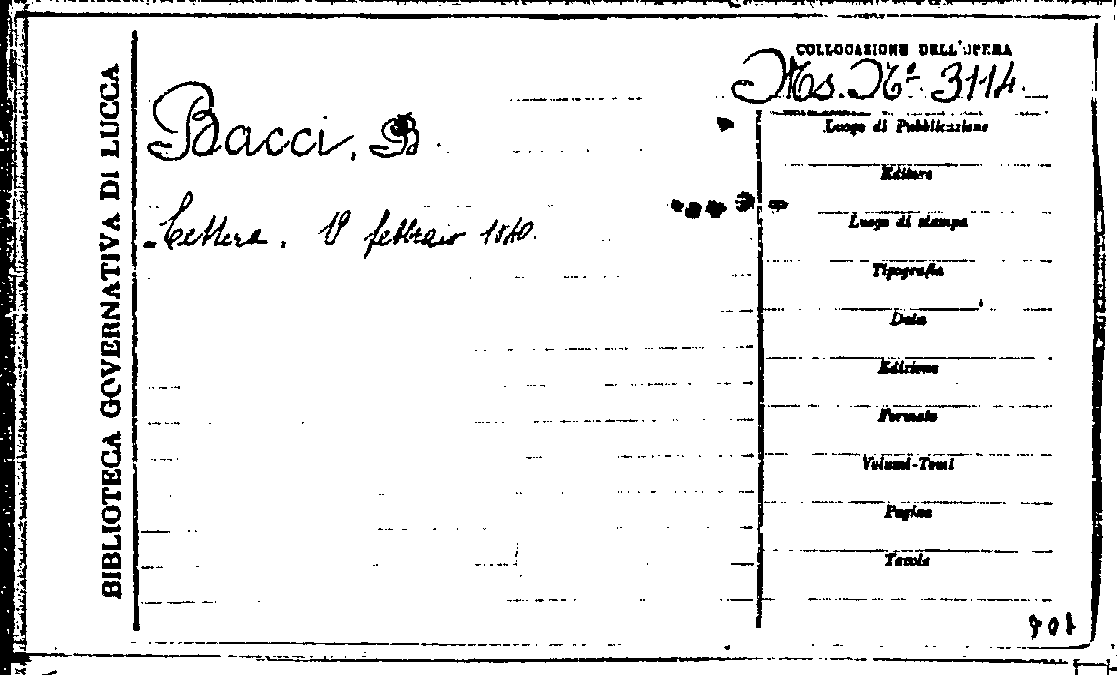 BIBLIOTECA GOVERNATIVA DI LUCCA
COLLOCAZIONE DELL'OPERA
Ms. Nº 3114.
Bacci, B.
Lettera. febbraio 1840.
Luogo di Pubblicazione
Editore
Luogo di stampa
Tipografia
Data
Edizione
Formato
Volumi-Tomi
Pagine
Tavole